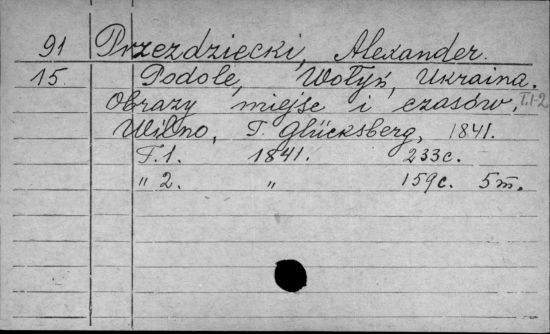 91 Przezdziecki, Alexander.
15. Podole, Wołyń, Ukraina.
Obrazy miejsc i czasów, T.1-2
Wilno, T. Glücksberg, 1841.
T.1. 1841. 233c.
" 2. " 159c. 5m.